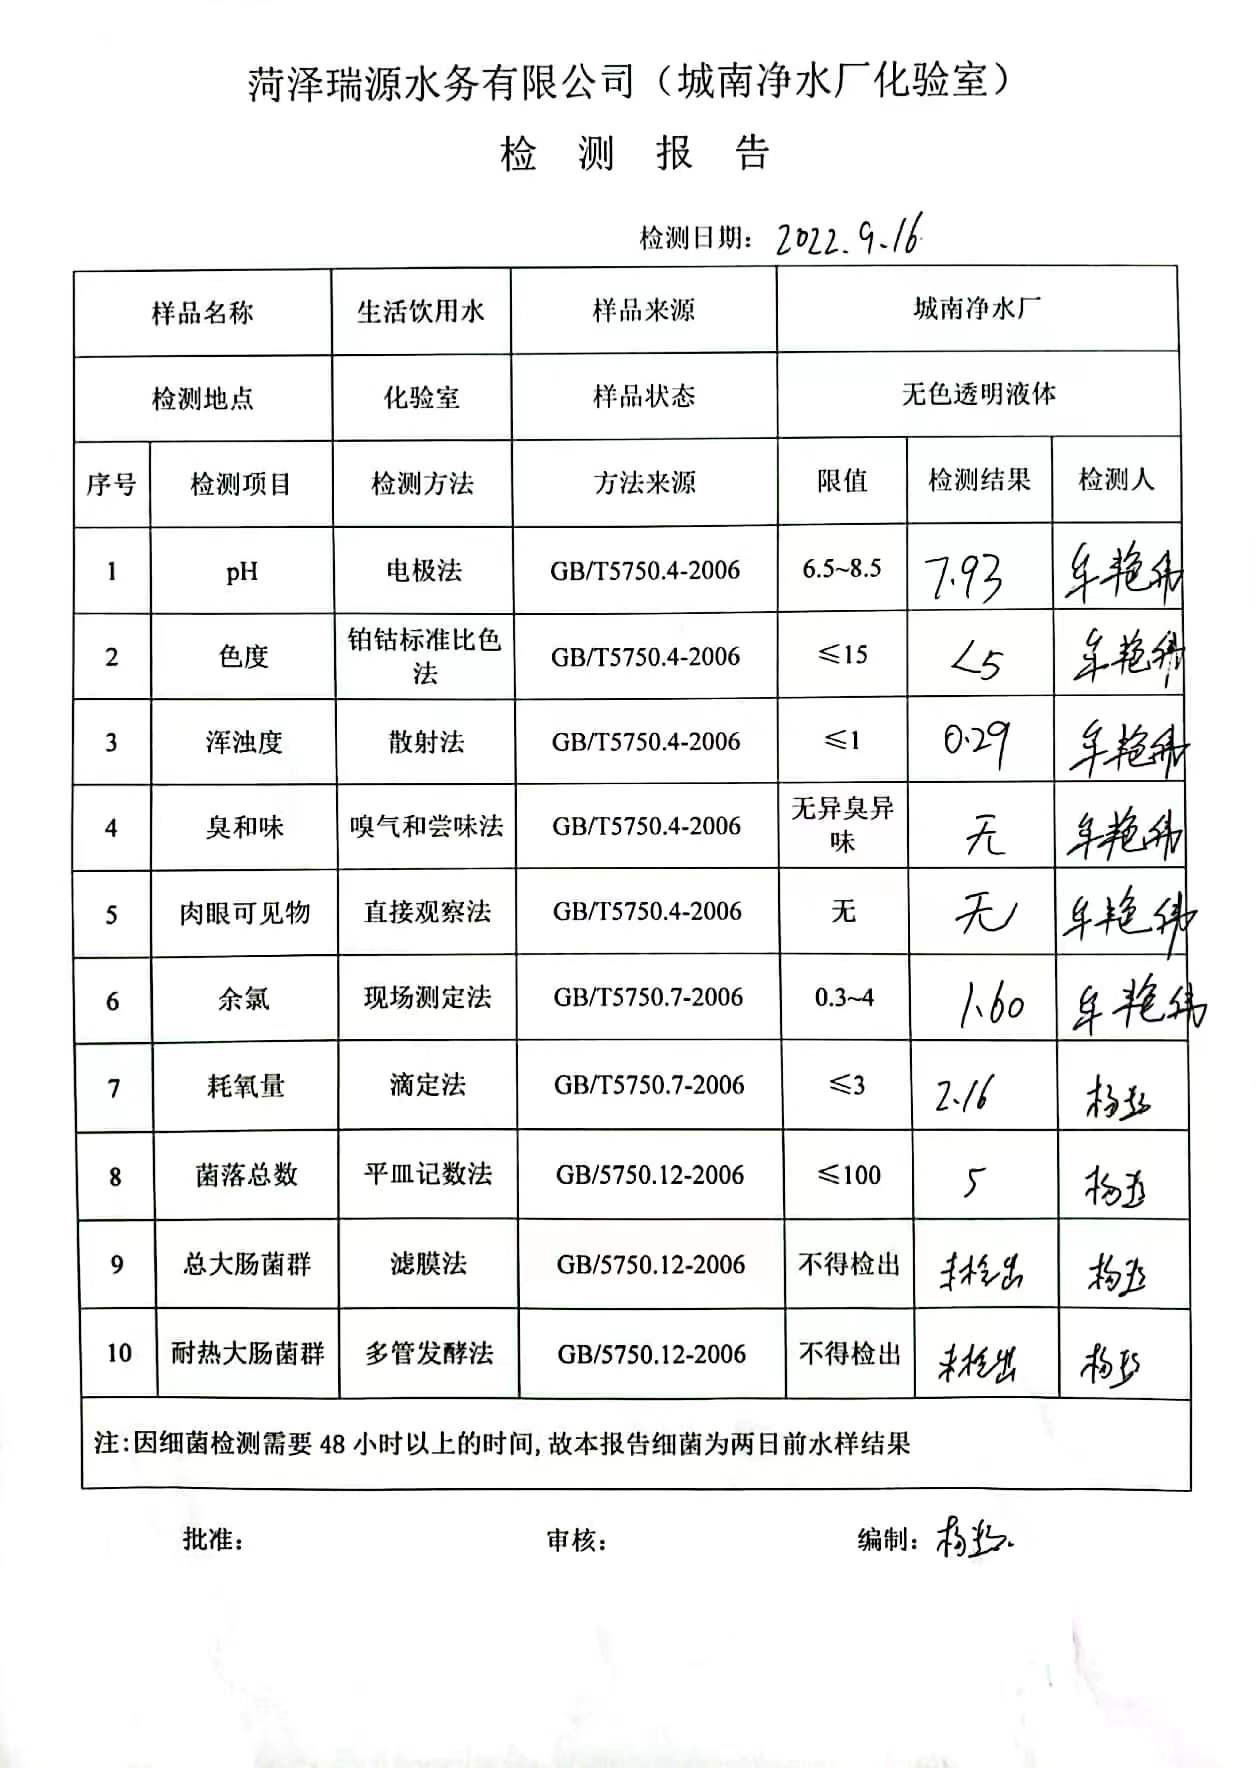 菏泽瑞源水务有限公司（城南净水厂化验室）
检 测 报 告
检测日期： 2022.9.16
样品名称 生活饮用水 样品来源 城南净水厂
检测地点 化验室 样品状态 无色透明液体
序号 检测项目 检测方法 方法来源 限值 检测结果 检测人
1 pH 电极法 GB/T5750.4-2006 6.5~8.5 7.93 牟艳伟
2 色度 铂钴标准比色法 GB/T5750.4-2006 ≤15 <5 牟艳伟
3 浑浊度 散射法 GB/T5750.4-2006 ≤1 0.29 牟艳伟
4 臭和味 嗅气和尝味法 GB/T5750.4-2006 无异臭异味 无 牟艳伟
5 肉眼可见物 直接观察法 GB/T5750.4-2006 无 无 牟艳伟
6 余氯 现场测定法 GB/T5750.7-2006 0.3~4 1.60 牟艳伟
7 耗氧量 滴定法 GB/T5750.7-2006 ≤3 2.16
8 菌落总数 平皿记数法 GB/5750.12-2006 ≤100 5
9 总大肠菌群 滤膜法 GB/5750.12-2006 不得检出 未检出
10 耐热大肠菌群 多管发酵法 GB/5750.12-2006 不得检出 未检出
注:因细菌检测需要 48 小时以上的时间,故本报告细菌为两日前水样结果
批准： 审核： 编制：